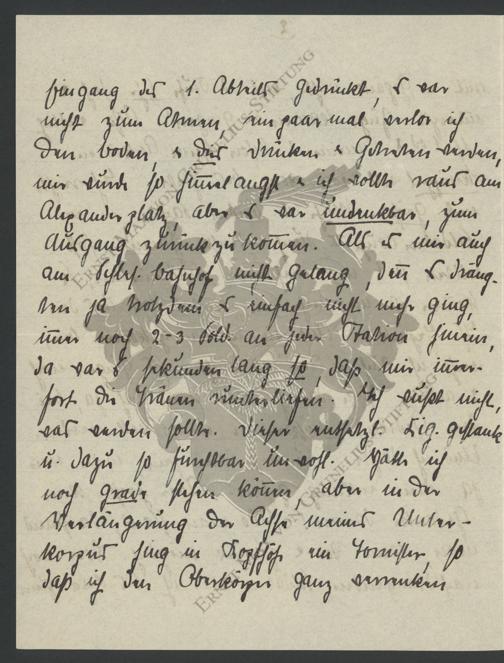 Eingang des 1. Abteils gedrückt, es war
nicht zum Atmen, ein paar mal verlor ich
den boden, & dies drücken & Getreten werden,
mir wurde so himmelangst & ich wollte raus am
Alexanderplatz, aber es war undenkbar, zum
Ausgang zurückzukommen. Als es mir auch
am Schles. bahnhof nicht gelang, denn es dräng-
ten ja trotzdem es einfach nicht mehr ging,
immer noch 2-3 Sold. an jeder Station hinein,
da war's sekunden lang so, daß mir immer-
fort die Tränen runterliefen. Ich wußt nicht,
was werden sollte. Dieser entsetzl. Zig. gestank
u. dazu so furchtbar unwohl. Hätte ich
noch grade stehen können aber in der
Verlängerung der Achse meines Unter-
korpus hing in Kopfhöhe ein Tornister, so
daß ich den Oberkörper ganz verrenken
ERNST STIFTUNG
ERNST GRAF STIFTUNG